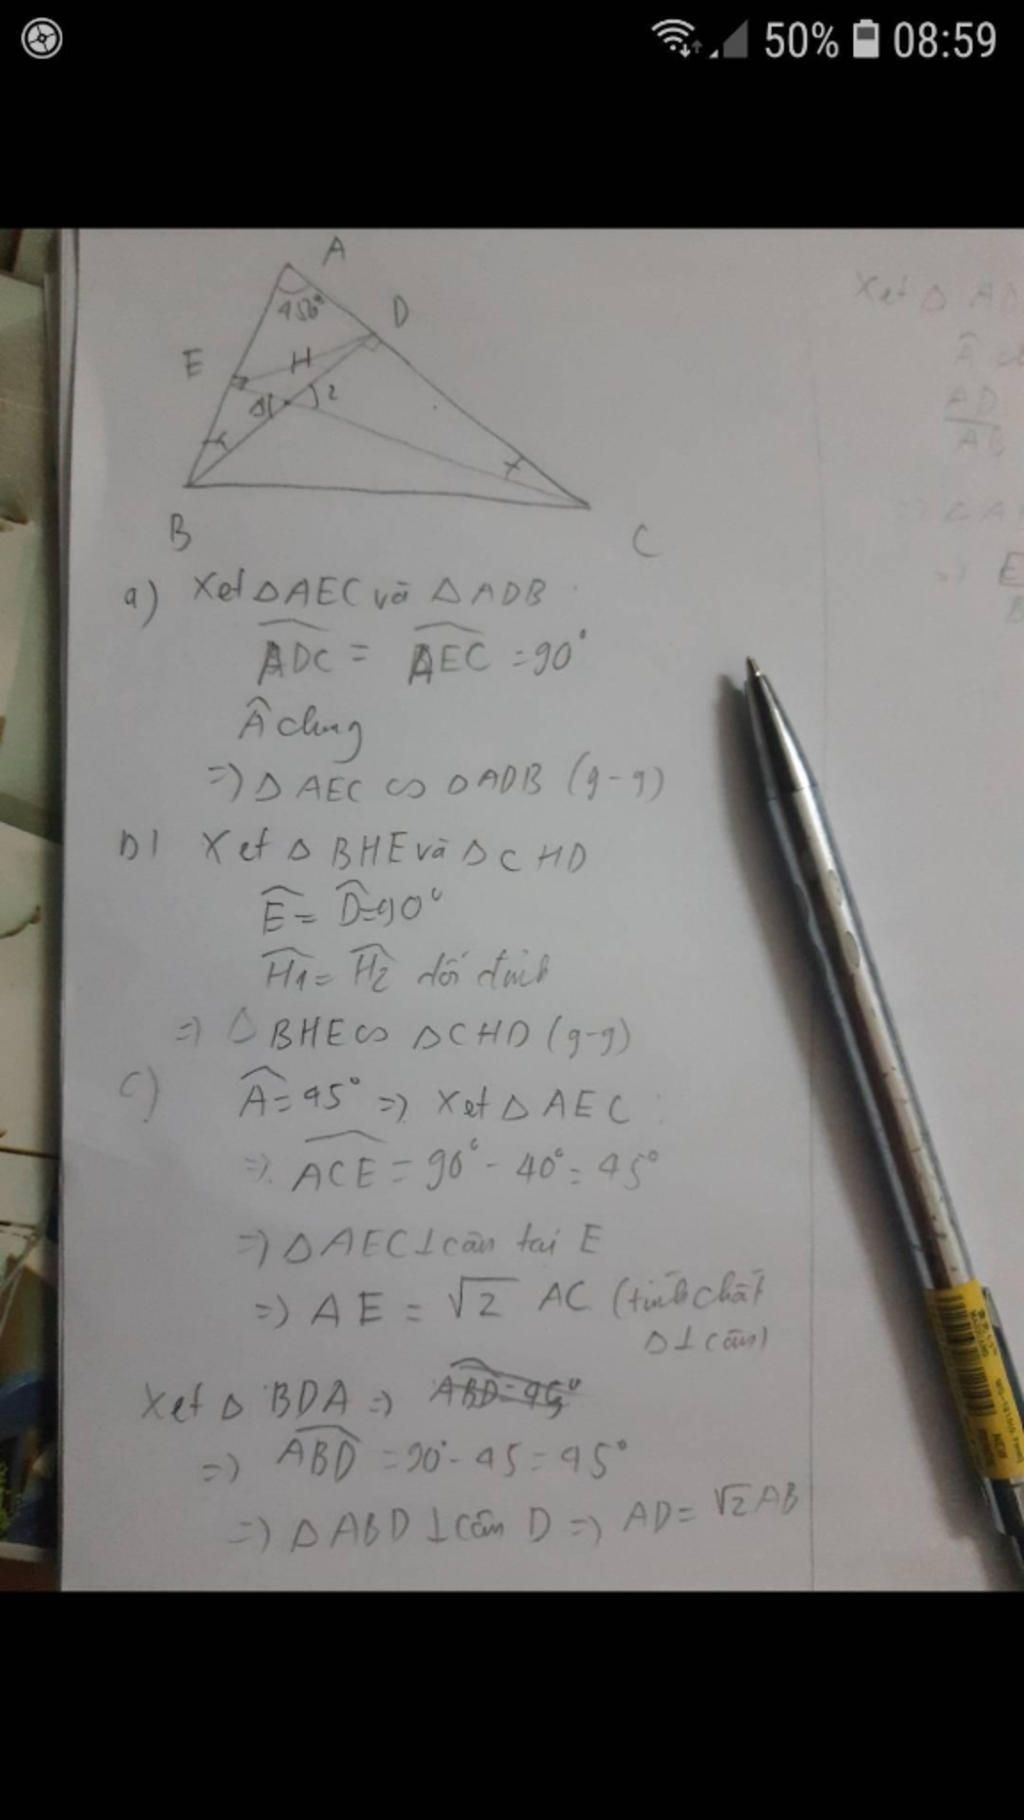 50% 08:59
A
45°
D
E
H
1
2
B
C
Xet △ AD
Â
AD
AB
a) Xet △AEC và △ADB
ADC = AEC = 90°
Â chung
=> △AEC ∽ △ADB (g-g)
b) Xet △BHE và △CHD
Ê = D̂ = 90°
H1 = H2 đối đỉnh
=> △BHE ∽ △CHD (g-g)
c) Â = 45° => Xet △AEC
=> ACE = 90° - 40° = 45°
=> △AEC ⊥ cân tai E
=> AE = √2 AC (tính chất
△ ⊥ cân)
Xet △ BDA => ABD = 45°
=> ABD = 90° - 45 = 45°
=> △ABD ⊥ cân D => AD = √2 AB